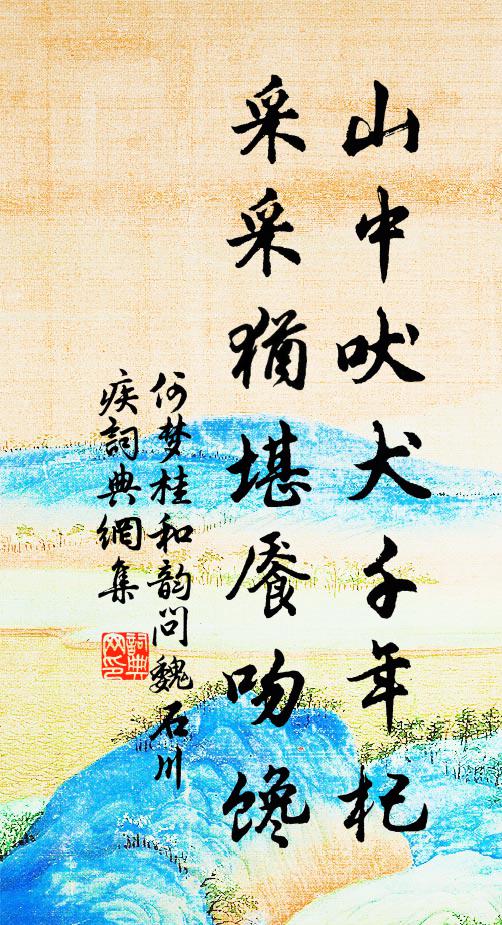 山中吠犬千年杞
采采猶堪饜吻馋
何梦桂和韵问魏石川
疾詞典網集
詞典